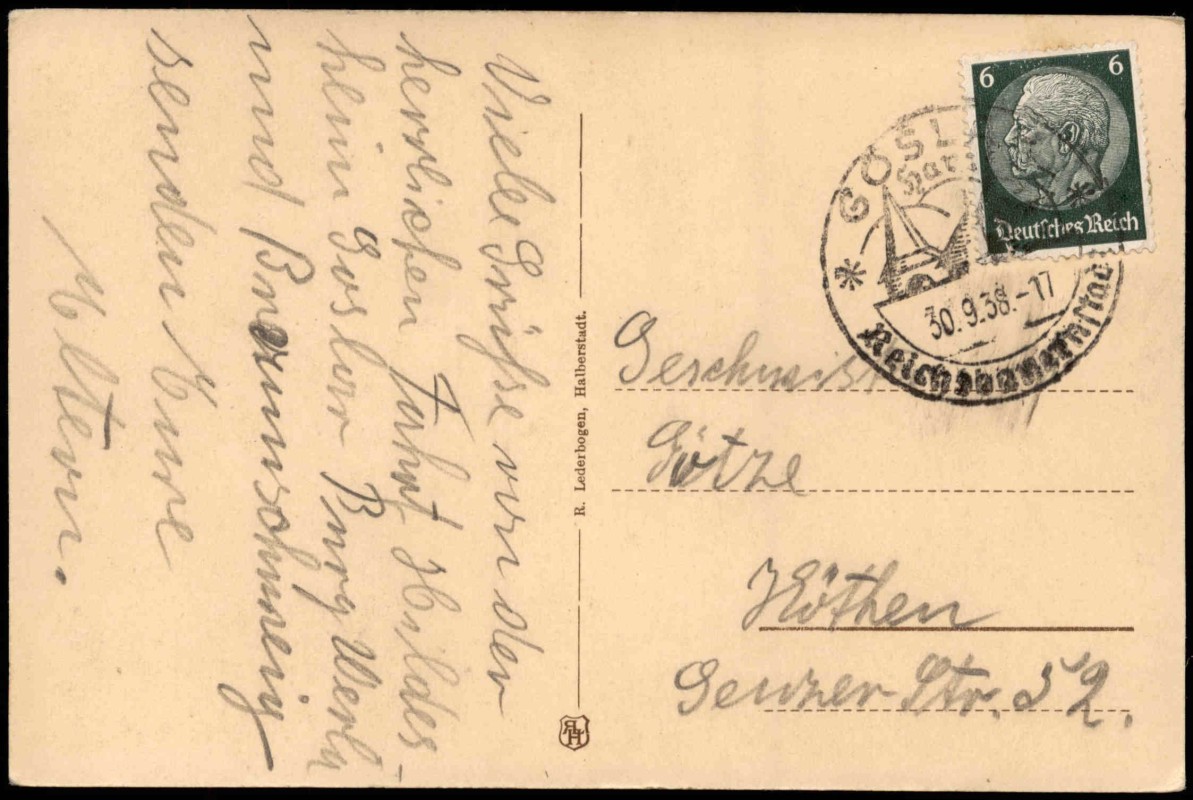 Viele Grüße von der
herrlichen Fahrt Hildes-
heim Goslar Burg Werla
und Braunschweig
senden Eure
Eltern.
R. Lederbogen, Halberstadt.
RLH
6 6
Deutsches Reich
GOSL
Har
30.9.38.-17
Reichsbauernstad
Geschwist
Götze
Köthen
Geuzer Str. 52.